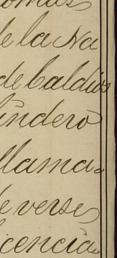 omas
de la Na
de baldios
lindero
llama-
de verse
icencia